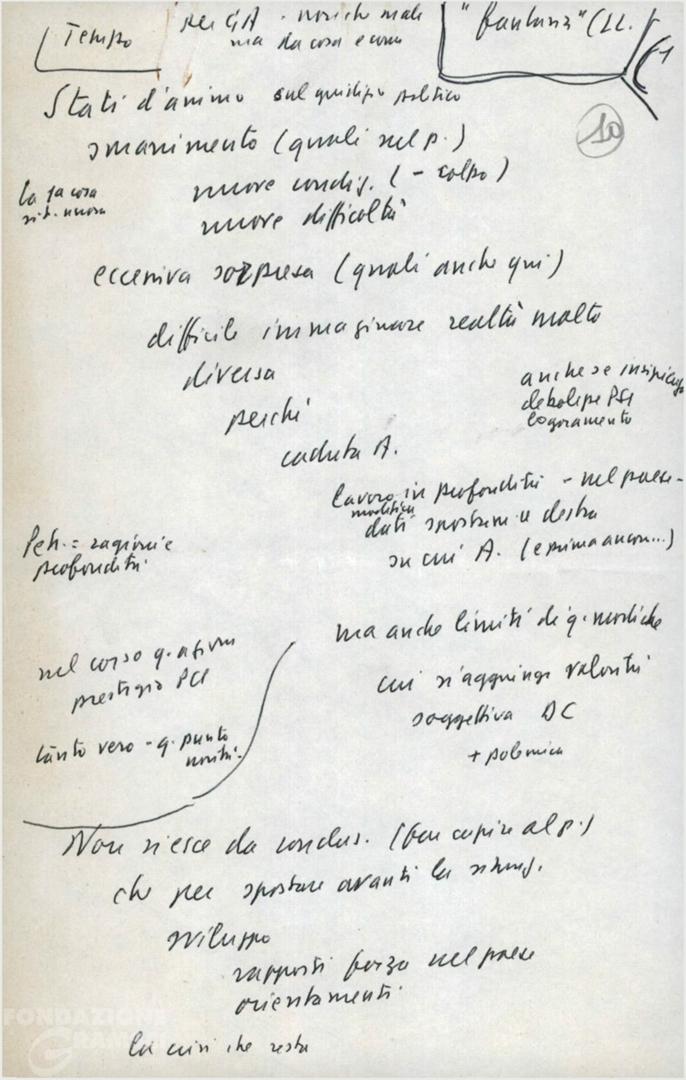 Tempo
per GA - non che male
ma da cosa e com
"fantasia" (LL.
10
Stati d'animo sul giudizio politico
smarrimento (quali nel p.)
la 1a cosa
sit. nuova
nuove condiz. (- colpo)
nuove difficoltà
eccessiva sorpresa (quali anche qui)
difficile immaginare realtà molto
diversa
perché
anche se
debolezze PSI
logoramento
caduta A.
lavoro in profondità - nel paese -
modifica
dati spostam. a destra
su cui A. (e prima ancora...)
Petr. = ragioni e
profondità
ma anche limiti di q. modifiche
nel corso q. afferm
prestigio PCI
cui s'aggiunge volontà
soggettiva DC
+ polemica
tanto vero - q. punto
novità.
Non riesce da conclus. (far capire al p.)
che per spostare avanti la situaz.
sviluppo
rapporti forza nel paese
orientamenti
la crisi che resta
FONDAZIONE
GRAMSCI